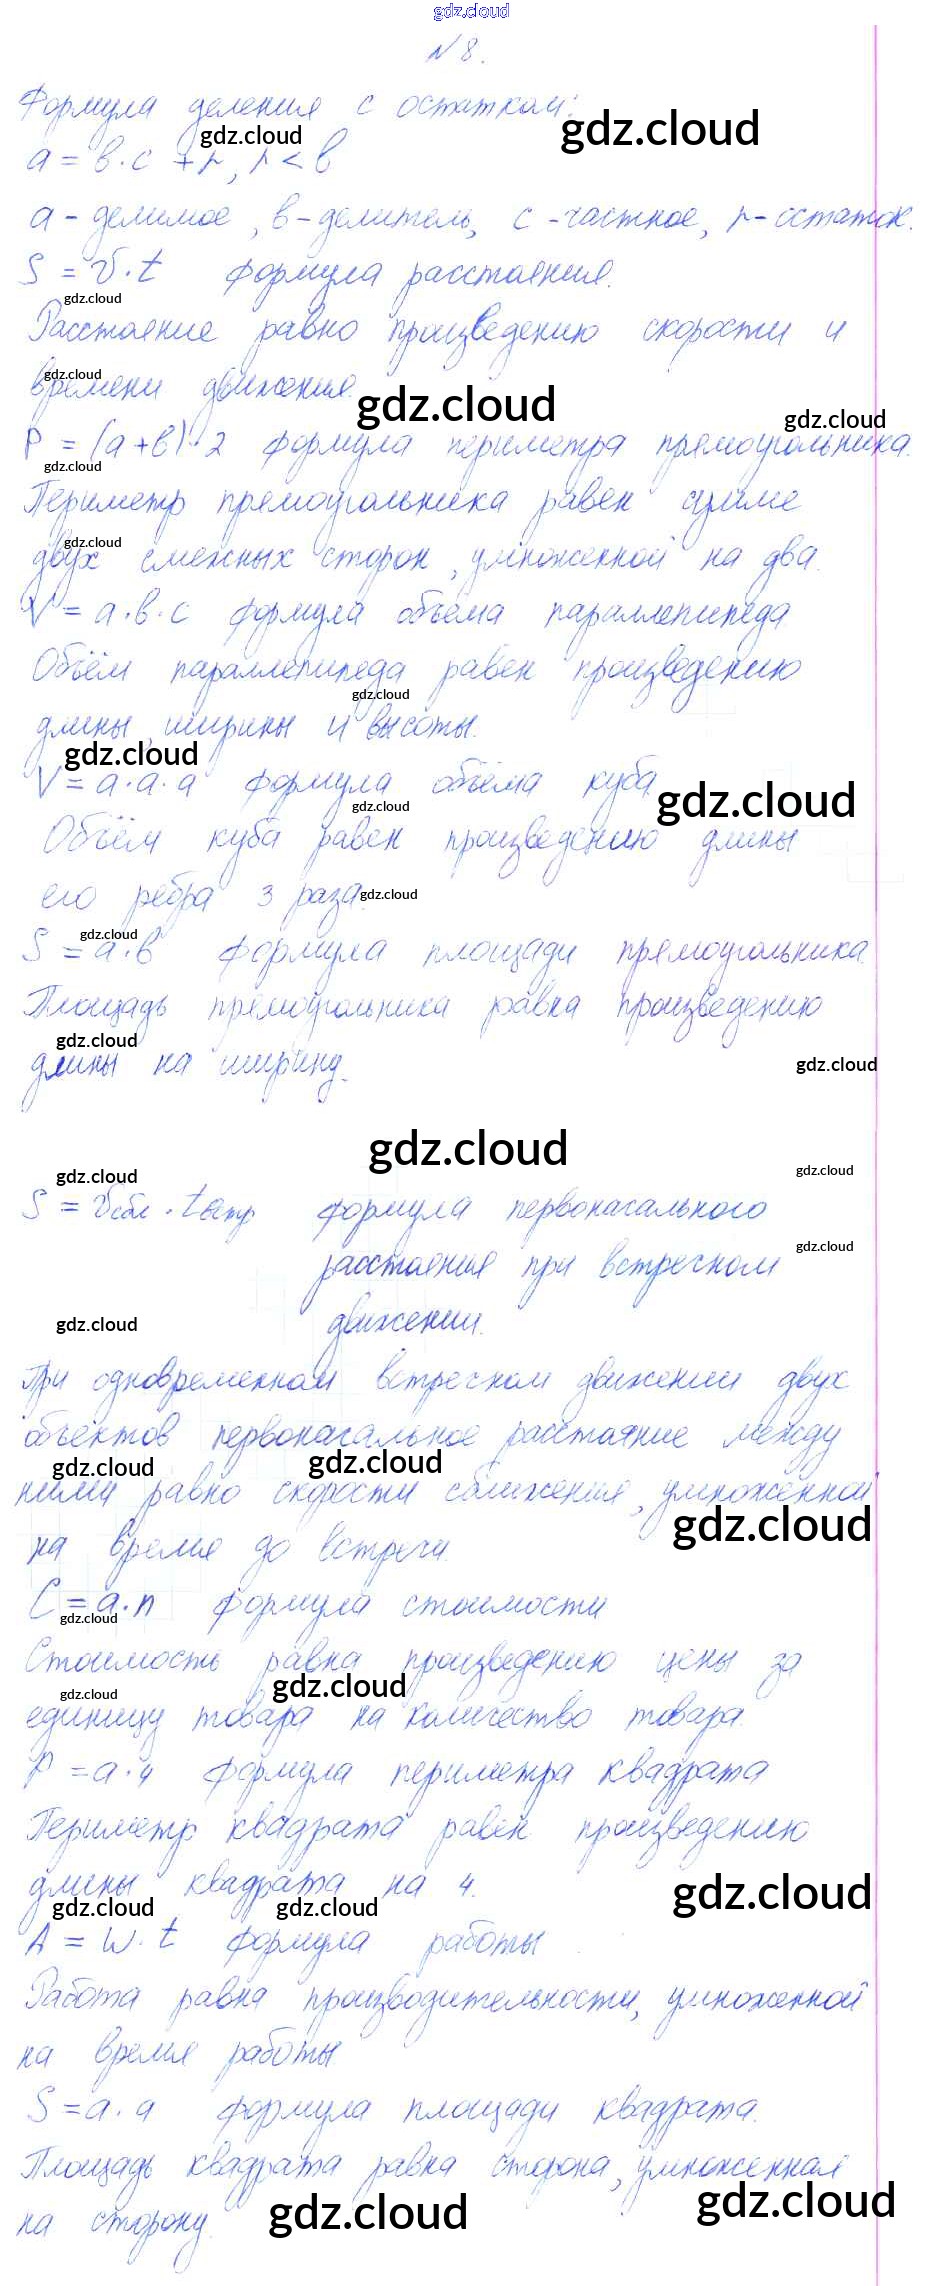 gdz.cloud
№ 8.
Формула деления с остатком:
gdz.cloud gdz.cloud
a = b · c + r, r < b
a - делимое, b - делитель, c - частное, r - остаток.
S = v · t формула расстояния.
gdz.cloud
Расстояние равно произведению скорости и
gdz.cloud
времени движения.
gdz.cloud gdz.cloud
P = (a + b) · 2 формула периметра прямоугольника.
gdz.cloud
Периметр прямоугольника равен сумме
gdz.cloud
двух смежных сторон, умноженной на два.
V = a · b · c формула объёма параллепипеда
Объём параллепипеда равен произведению
gdz.cloud
длины, ширины и высоты.
gdz.cloud
V = a · a · a формула объёма куба.
gdz.cloud gdz.cloud
Объём куба равен произведению длины
его ребра 3 раза.
gdz.cloud
gdz.cloud
S = a · b формула площади прямоугольника.
Площадь прямоугольника равна произведению
gdz.cloud
длины на ширину.
gdz.cloud
gdz.cloud
gdz.cloud gdz.cloud
S = vсбл · tвстр формула первоначального
gdz.cloud
расстояния при встречном
gdz.cloud
движении.
При одновременном встречном движении двух
объектов первоначальное расстояние между
gdz.cloud gdz.cloud
ними равно скорости сближения, умноженной
gdz.cloud
на время до встречи.
C = a · n формула стоимости
gdz.cloud
Стоимость равна произведению цены за
gdz.cloud gdz.cloud
единицу товара на количество товара.
P = a · 4 формула периметра квадрата
Периметр квадрата равен произведению
длины квадрата на 4.
gdz.cloud gdz.cloud gdz.cloud
A = w · t формула работы
Работа равна производительности, умноженной
на время работы
S = a · a формула площади квадрата.
Площадь квадрата равна сторона, умноженная
на сторону.
gdz.cloud gdz.cloud